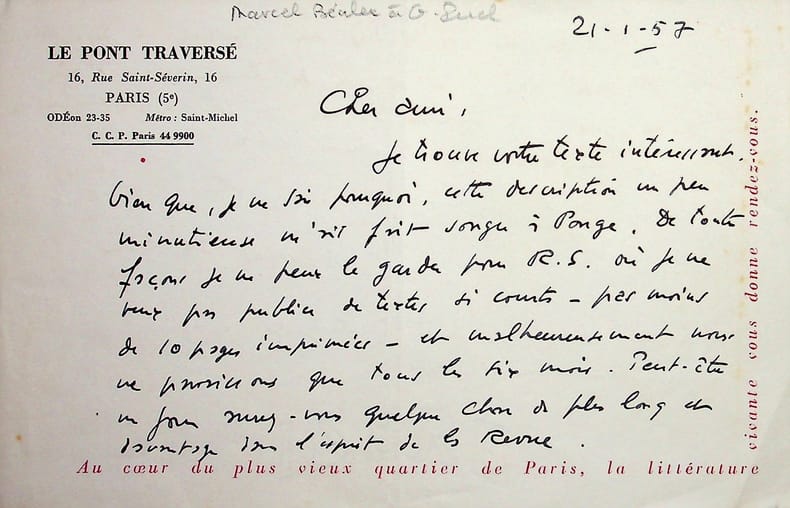 Marcel Béalu à G.
21-1-57
LE PONT TRAVERSÉ
16, Rue Saint-Séverin, 16
PARIS (5e)
ODÉon 23-35 Métro : Saint-Michel
C. C. P. Paris 44 9900
Cher ami,
Je trouve votre texte intéressant.
bien que, je ne sais pourquoi, cette description un peu
minutieuse m'ait fait songer à Ponge. De toute
façons je ne peux le garder pour R.S. où je ne
veux pas publier de textes si courts – pas moins
de 10 pages imprimées – et malheureusement nous
ne paraissons que tous les six mois. Peut-être
un jour aurez-vous quelque chose de plus long et
davantage dans l'esprit de la Revue.
Au cœur du plus vieux quartier de Paris, la littérature
vivante vous donne rendez-vous.